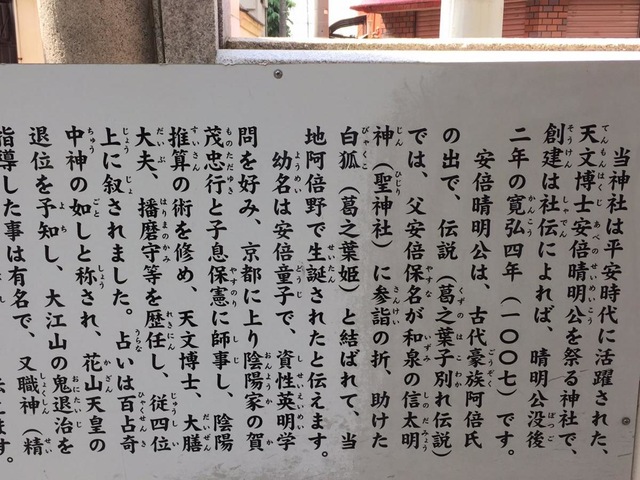 当神社は平安時代に活躍された、
天文博士安倍晴明公を祭る神社で、
創建は社伝によれば、晴明公没後
二年の寛弘四年（一〇〇七）です。
安倍晴明公は、古代豪族阿倍氏
の出で、伝説（葛之葉子別れ伝説）
では、父安倍保名が和泉の信太明
神（聖神社）に参詣の折、助けた
白狐（葛之葉姫）と結ばれて、当
地阿倍野で生誕されたと伝えます。
幼名は安倍童子で、資性英明学
問を好み、京都に上り陰陽家の賀
茂忠行と子息保憲に師事し、陰陽
推算の術を修め、天文博士、大膳
大夫、播磨守等を歴任し、従四位
上に叙されました。占いは百占奇
中神の如しと称され、花山天皇の
退位を予知し、大江山の鬼退治を
指導した事は有名で、又職神（精